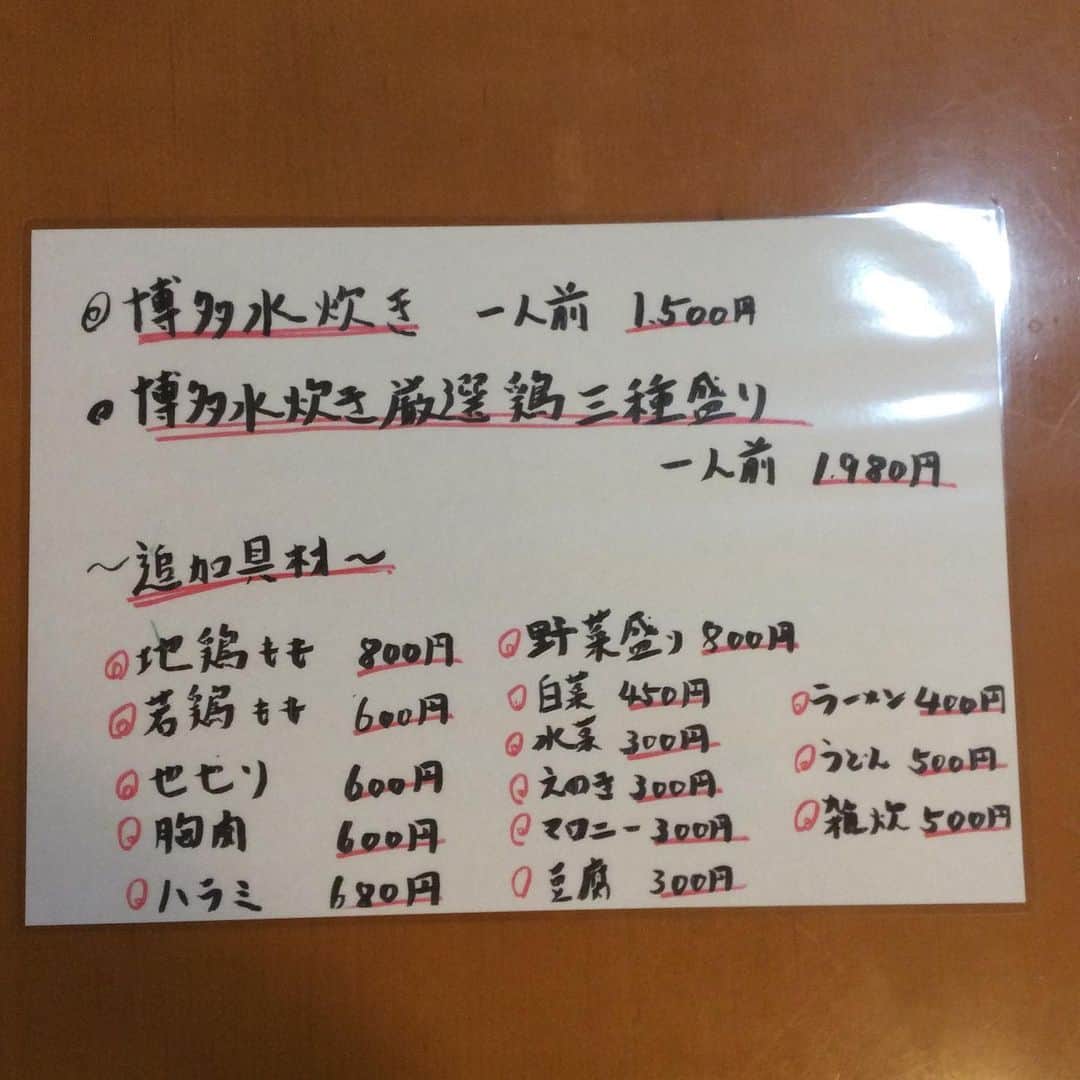 博多水炊き 一人前 1.500円
博多水炊き厳選鶏三種盛り
一人前 1.980円
～追加具材～
地鶏もも 800円
若鶏もも 600円
セセリ 600円
胸肉 600円
ハラミ 680円
野菜盛り 800円
白菜 450円
水菜 300円
えのき 300円
マロニー 300円
豆腐 300円
ラーメン 400円
うどん 500円
雑炊 500円